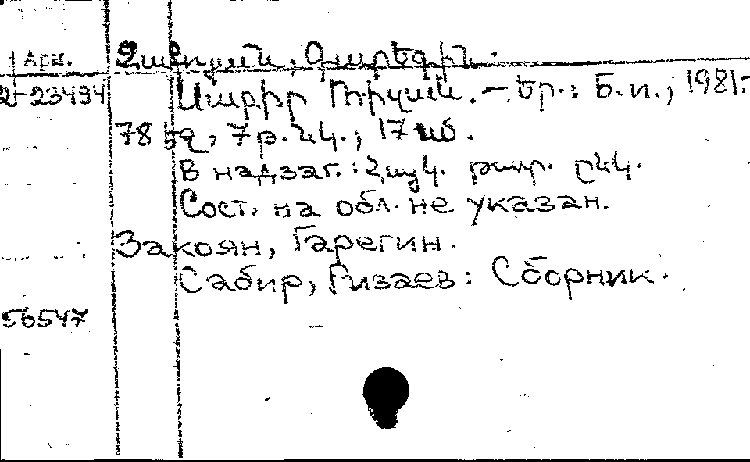 Арм. Զաքոյան, Գարեգին.
2-23494 Սաբիր Ռիզաև. — Եր.: Б. и., 1981.-
78 էջ, 7 թ. նկ.; 17 սմ.
В надзаг.: Հայկ. թատ. ընկ.
Сост. на обл. не указан.
Закоян, Гарегин.
Сабир, Ризаев: Сборник.
56547